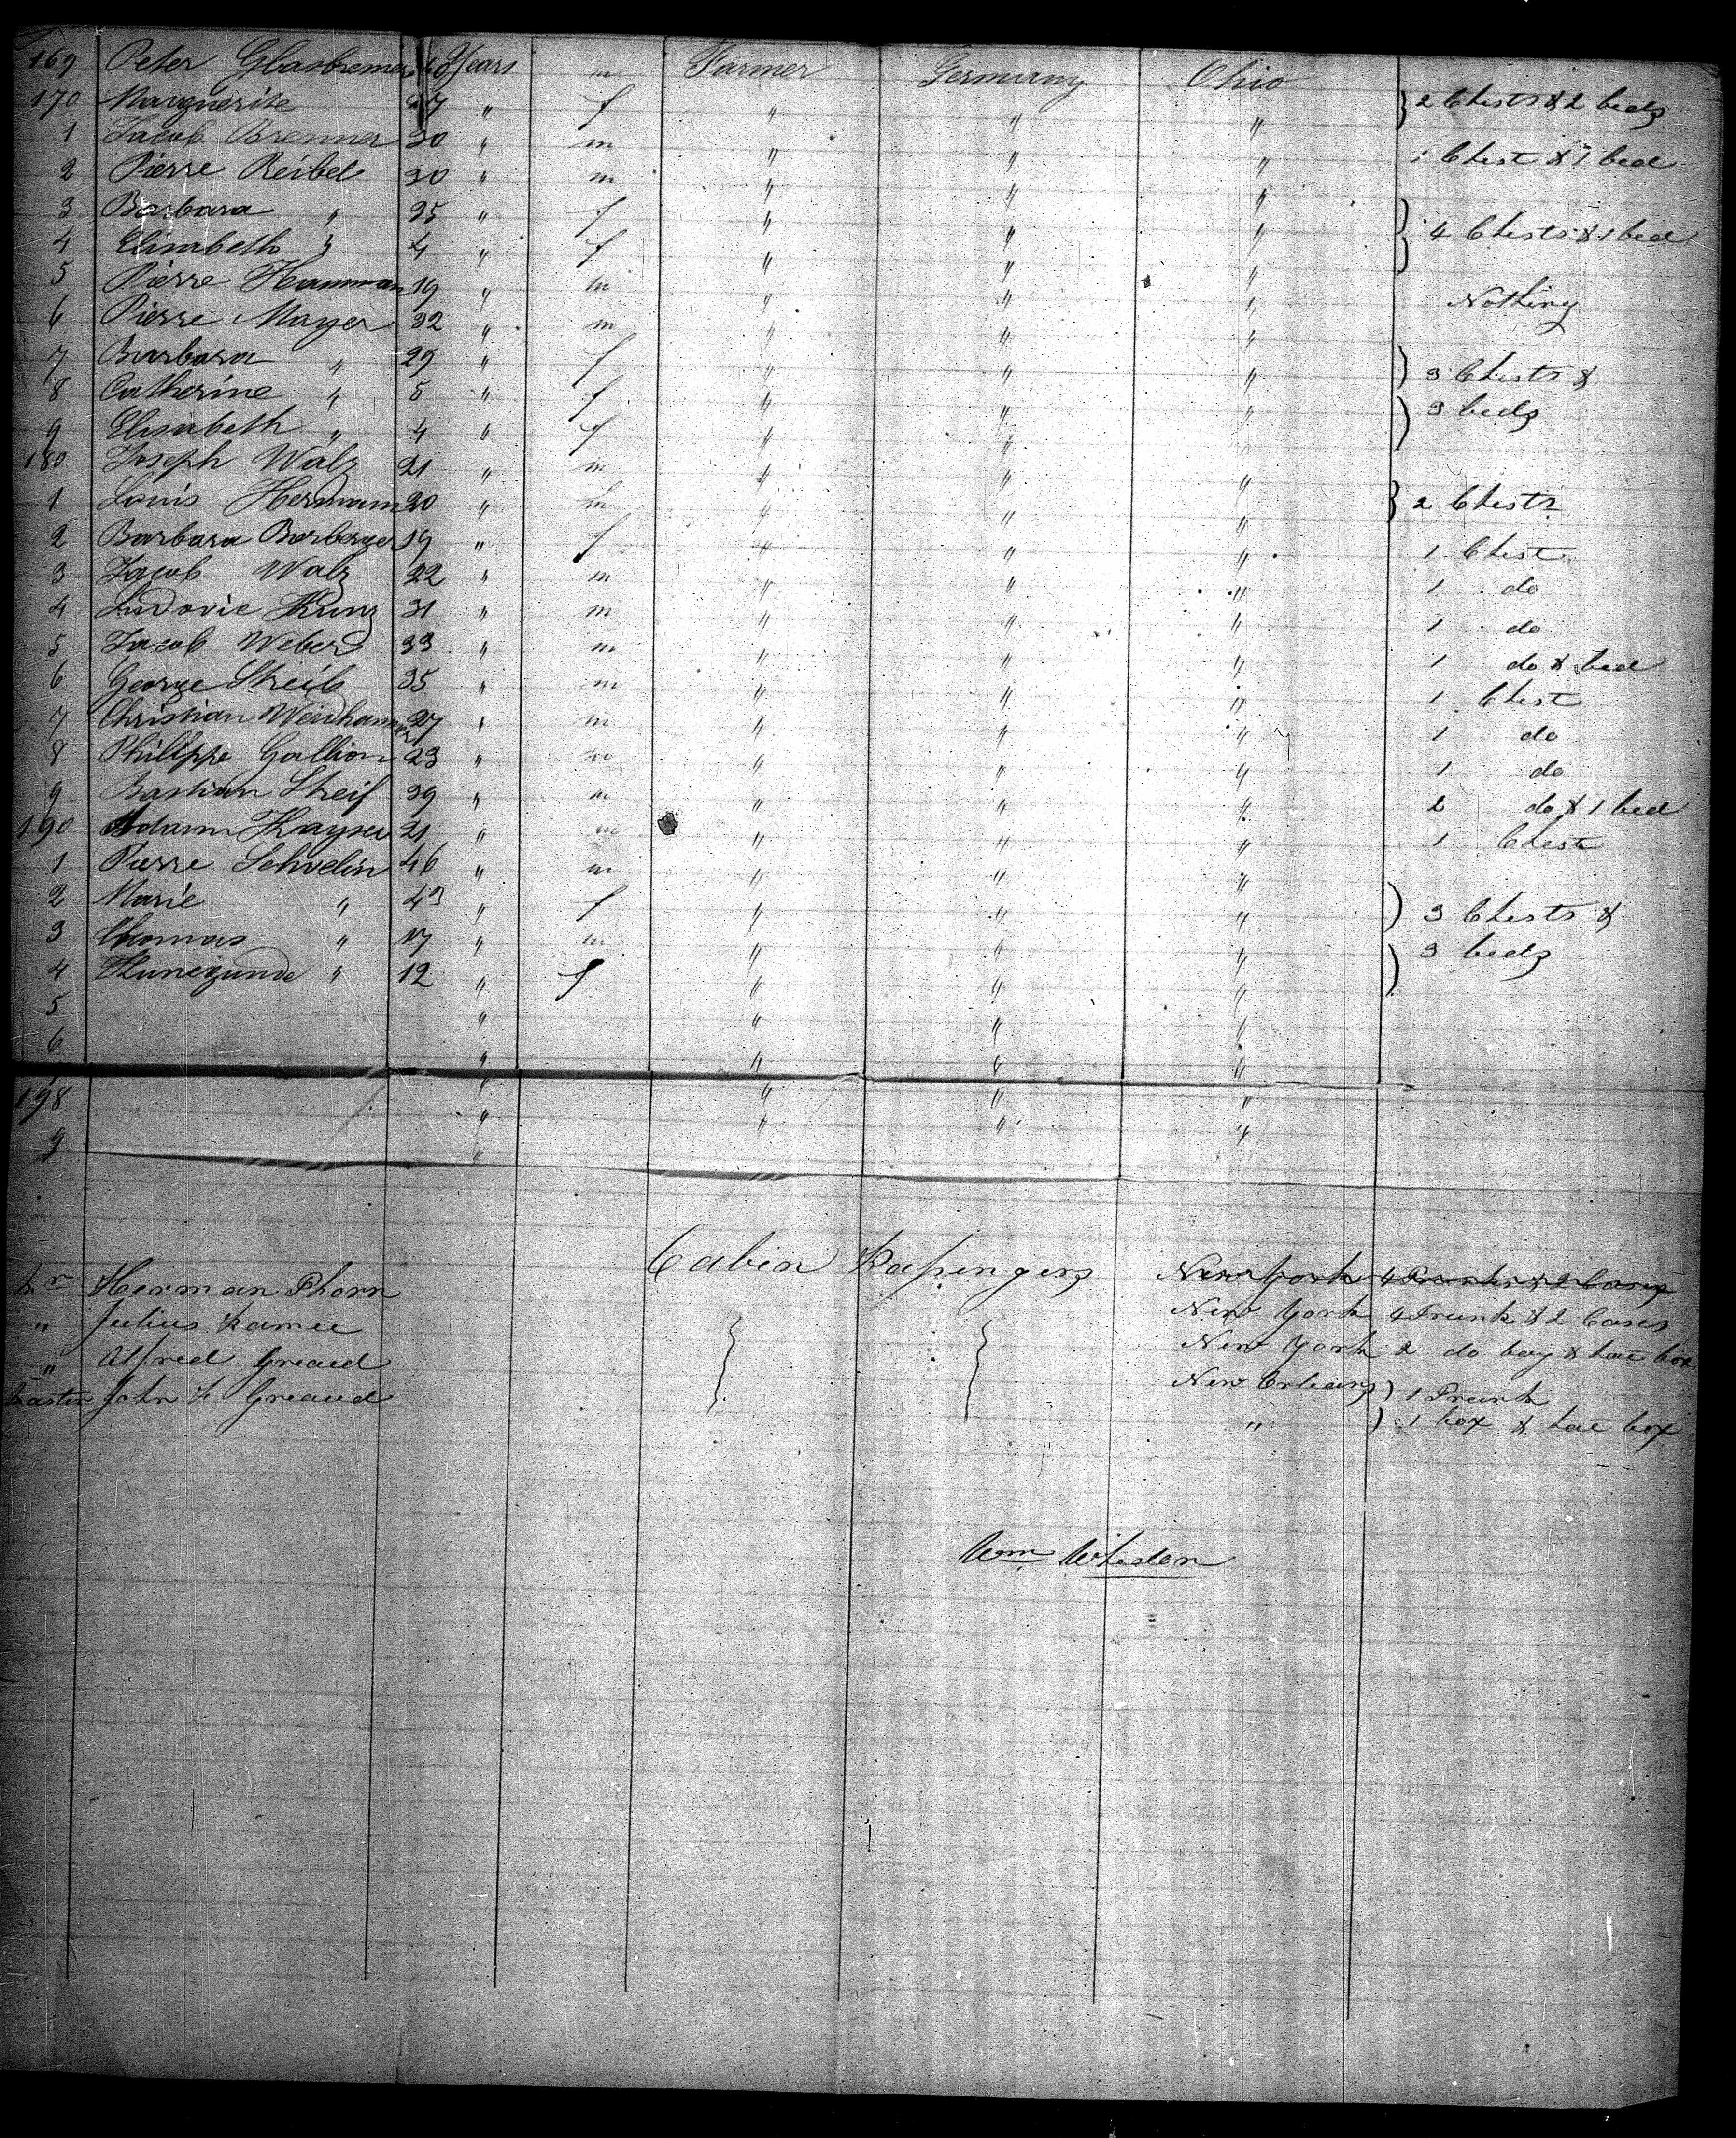 169 Peter Glasbrenner 40 Years m Farmer Germany Ohio
170 Marguerite 27 " f " " " } 2 Chests & 2 beds
1 Jacob Brenner 30 " m " " " 1 Chest & 1 bed
2 Pierre Reibel 30 " m " " "
3 Barbara " 35 " f " " " } 4 Chests & 1 bed
4 Elisabeth " 4 " f " " "
5 Pierre Hamman 19 " m " " " Nothing
6 Pierre Mayer 32 " m " " "
7 Barbara " 29 " f " " " } 3 Chests &
8 Catherine " 5 " f " " " } 3 beds
9 Elisabeth " 4 " f " " "
180 Joseph Walz 21 " m " " "
1 Louis Hermann 20 " m " " " } 2 Chests
2 Barbara 19 " f " " " 1 Chest
3 Jacob Walz 22 " m " " " 1 do
4 Ludovic Kunz 31 " m " " " 1 do
5 Jacob Weber 33 " m " " " 1 do & bed
6 George Streib 35 " m " " " 1 Chest
7 Christian 27 " m " " " 1 do
8 Philippe Gallion 23 " m " " " 1 do
9 Bastian Streif 39 " m " " " 2 do & 1 bed
190 Adam Kayser 21 " m " " " 1 Chest
1 Pierre Schvelin 46 " m " " "
2 Marie " 43 " f " " " ) 3 Chests &
3 Thomas " 17 " m " " " ) 3 beds
4 Kunigunde " 12 " f " " "
5 " " " "
6 " " " "
198 " " " "
9 " " " "
Cabin Passengers
Mr Herman Thorn New York 4 Trunks & 2 Cases
" Julius Ramee New York 4 Trunk & 2 Cases
" Alfred Greaud New York 2 do bag & hat box
Master John F Greaud New Orleans ) 1 Trunk
" ) 1 box & hat box
Wm Whesdon